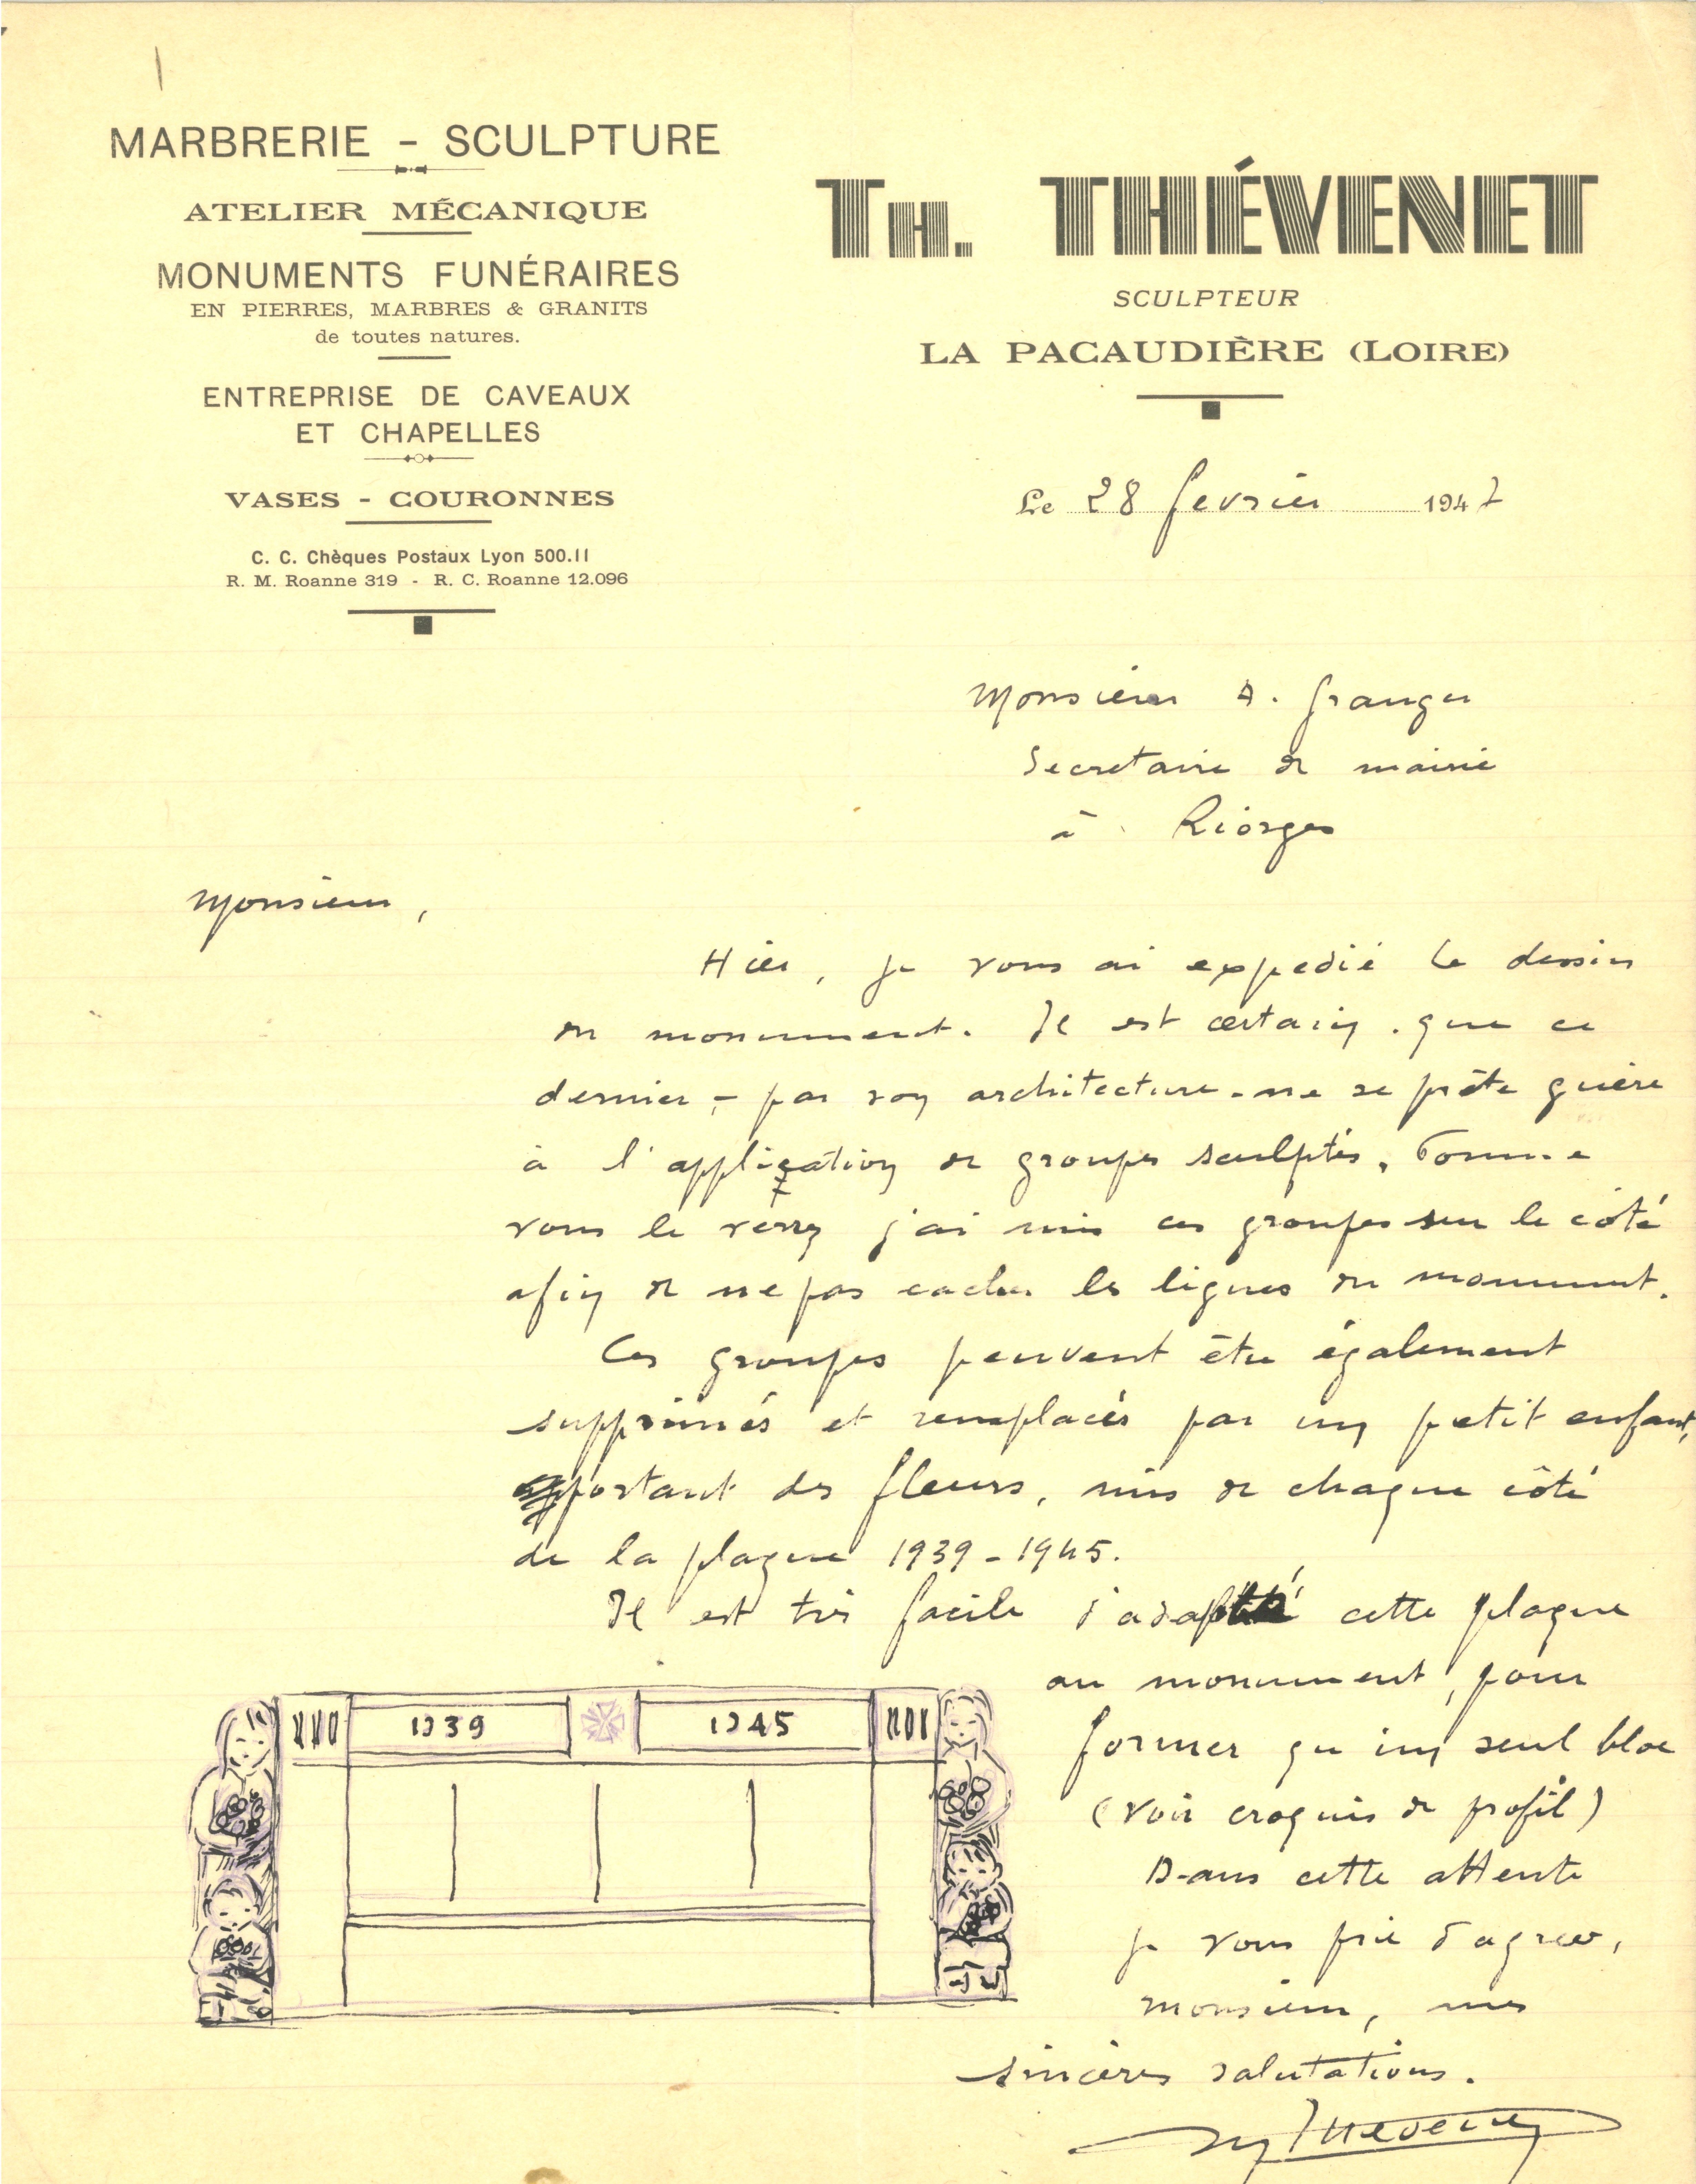 MARBRERIE - SCULPTURE
ATELIER MÉCANIQUE
MONUMENTS FUNÉRAIRES
EN PIERRES, MARBRES & GRANITS
de toutes natures.
ENTREPRISE DE CAVEAUX
ET CHAPELLES
VASES - COURONNES
C. C. Chèques Postaux Lyon 500.11
R. M. Roanne 319 - R. C. Roanne 12.096
TH. THÉVENET
SCULPTEUR
LA PACAUDIÈRE (LOIRE)
Le 28 fevrier 1947
Monsieur A. Granger
Secretaire de mairie
à Riorges
Monsieur,
Hier, je vous ai expedié le dessin
du monument. Il est certain que ce
dernier - par son architecture - ne se prête guère
à l'application de groupes sculptés. Comme
vous le verrez j'ai mis ces groupes sur le côté
afin de ne pas cacher les lignes du monument.
Ces groupes peuvent être également
supprimés et remplacés par un petit enfant,
portant des fleurs, mis de chaque côté
de la plaque 1939-1945.
Il est très facile d'adapté cette plaque
au monument, pour
former qu'un seul bloc
(voir croquis de profil)
Dans cette attente
je vous prie d'agreer,
monsieur, mes
sincères salutations.
Thevenet
1939 1945